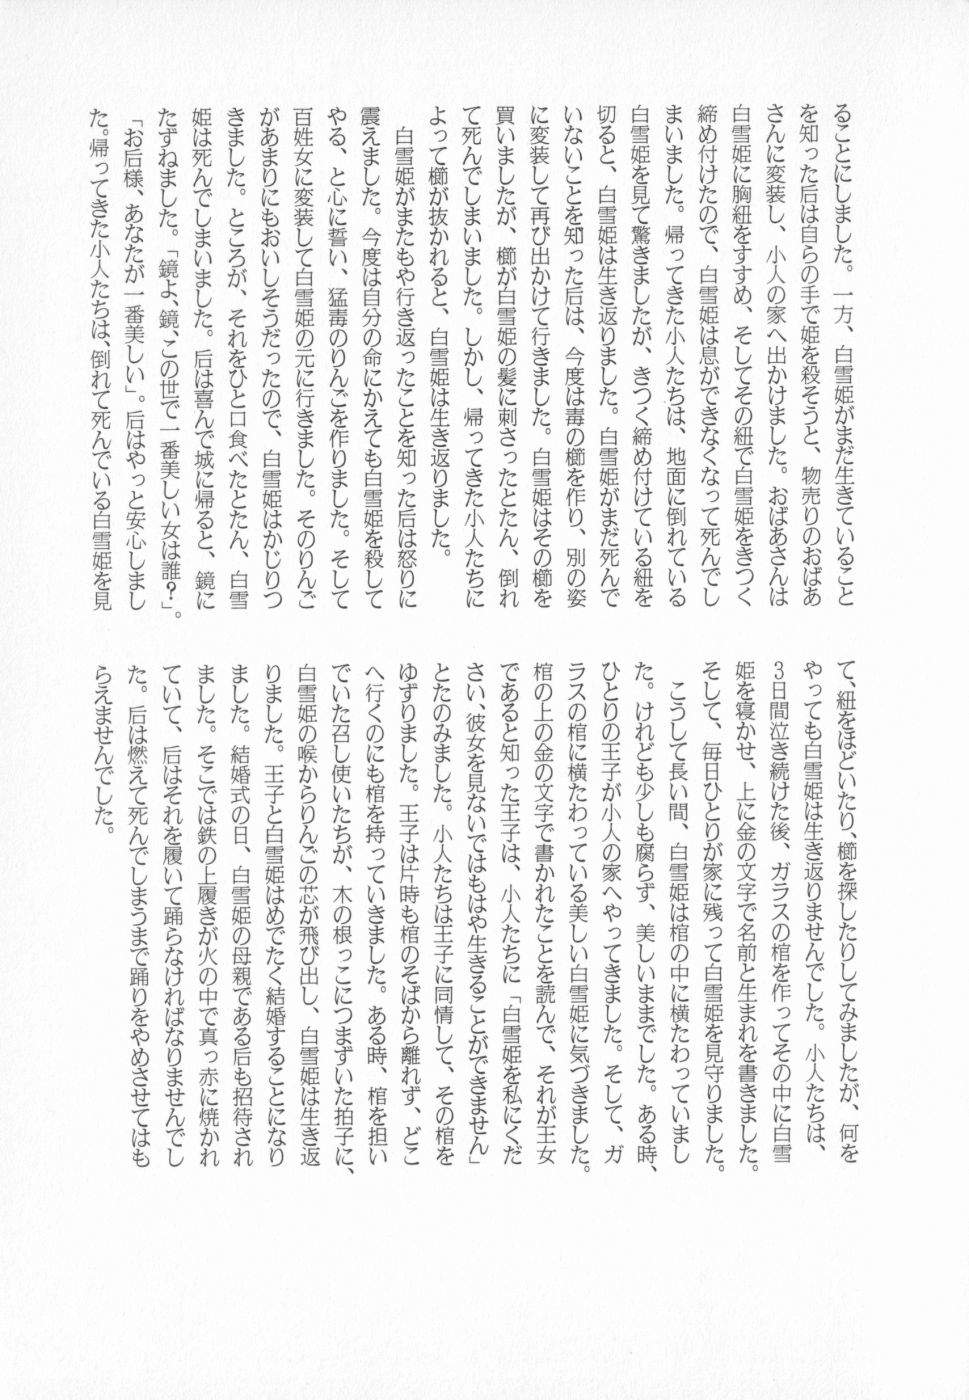 ることにしました。一方、白雪姫がまだ生きていること
を知った后は自らの手で姫を殺そうと、物売りのおばあ
さんに変装し、小人の家へ出かけました。おばあさんは
白雪姫に胸紐をすすめ、そしてその紐で白雪姫をきつく
締め付けたので、白雪姫は息ができなくなって死んでし
まいました。帰ってきた小人たちは、地面に倒れている
白雪姫を見て驚きましたが、きつく締め付けている紐を
切ると、白雪姫は生き返りました。白雪姫がまだ死んで
いないことを知った后は、今度は毒の櫛を作り、別の姿
に変装して再び出かけて行きました。白雪姫はその櫛を
買いましたが、櫛が白雪姫の髪に刺さったとたん、倒れ
て死んでしまいました。しかし、帰ってきた小人たちに
よって櫛が抜かれると、白雪姫は生き返りました。
白雪姫がまたもや行き返ったことを知った后は怒りに
震えました。今度は自分の命にかえても白雪姫を殺して
やる、と心に誓い、猛毒のりんごを作りました。そして
百姓女に変装して白雪姫の元に行きました。そのりんご
があまりにもおいしそうだったので、白雪姫はかじりつ
きました。ところが、それをひと口食べたとたん、白雪
姫は死んでしまいました。后は喜んで城に帰ると、鏡に
たずねました。「鏡よ、鏡、この世で一番美しい女は誰?」。
「お后様、あなたが一番美しい」。后はやっと安心しまし
た。帰ってきた小人たちは、倒れて死んでいる白雪姫を見
て、紐をほどいたり、櫛を探したりしてみましたが、何を
やっても白雪姫は生き返りませんでした。小人たちは、
3日間泣き続けた後、ガラスの棺を作ってその中に白雪
姫を寝かせ、上に金の文字で名前と生まれを書きました。
そして、毎日ひとりが家に残って白雪姫を見守りました。
こうして長い間、白雪姫は棺の中に横たわっていまし
た。けれども少しも腐らず、美しいままでした。ある時、
ひとりの王子が小人の家へやってきました。そして、ガ
ラスの棺に横たわっている美しい白雪姫に気づきました。
棺の上の金の文字で書かれたことを読んで、それが王女
であると知った王子は、小人たちに「白雪姫を私にくだ
さい、彼女を見ないではもはや生きることができません」
とたのみました。小人たちは王子に同情して、その棺を
ゆずりました。王子は片時も棺のそばから離れず、どこ
へ行くのにも棺を持っていきました。ある時、棺を担い
でいた召し使いたちが、木の根っこにつまずいた拍子に、
白雪姫の喉からりんごの芯が飛び出し、白雪姫は生き返
りました。王子と白雪姫はめでたく結婚することになり
ました。結婚式の日、白雪姫の母親である后も招待され
ました。そこでは鉄の上履きが火の中で真っ赤に焼かれ
ていて、后はそれを履いて踊らなければなりませんでし
た。后は燃えて死んでしまうまで踊りをやめさせてはも
らえませんでした。